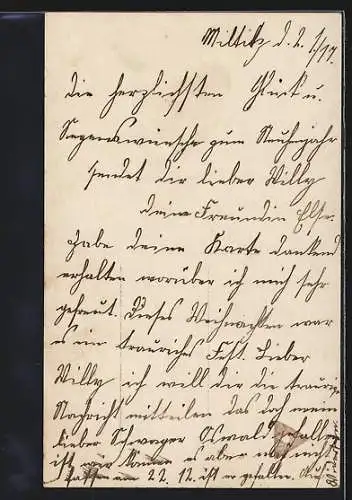 Miltitz d. 2. 1./17.
die herzlichsten Glück u.
Segenswünsche zum Neuenjahr
sendet dir lieber Willy
deine Freundin Else.
habe deine Karte dankend
erhalten worüber ich mich sehr
gefreut. Dieses Weihnachten war
es ein trauriges Fest. Lieber
Willy ich will dir die traurige
Nachricht mitteilen das doch mein
lieber Schwager Oswald gefallen
ist wir können es aber nicht
fassen am 22. 12. ist er gefallen.